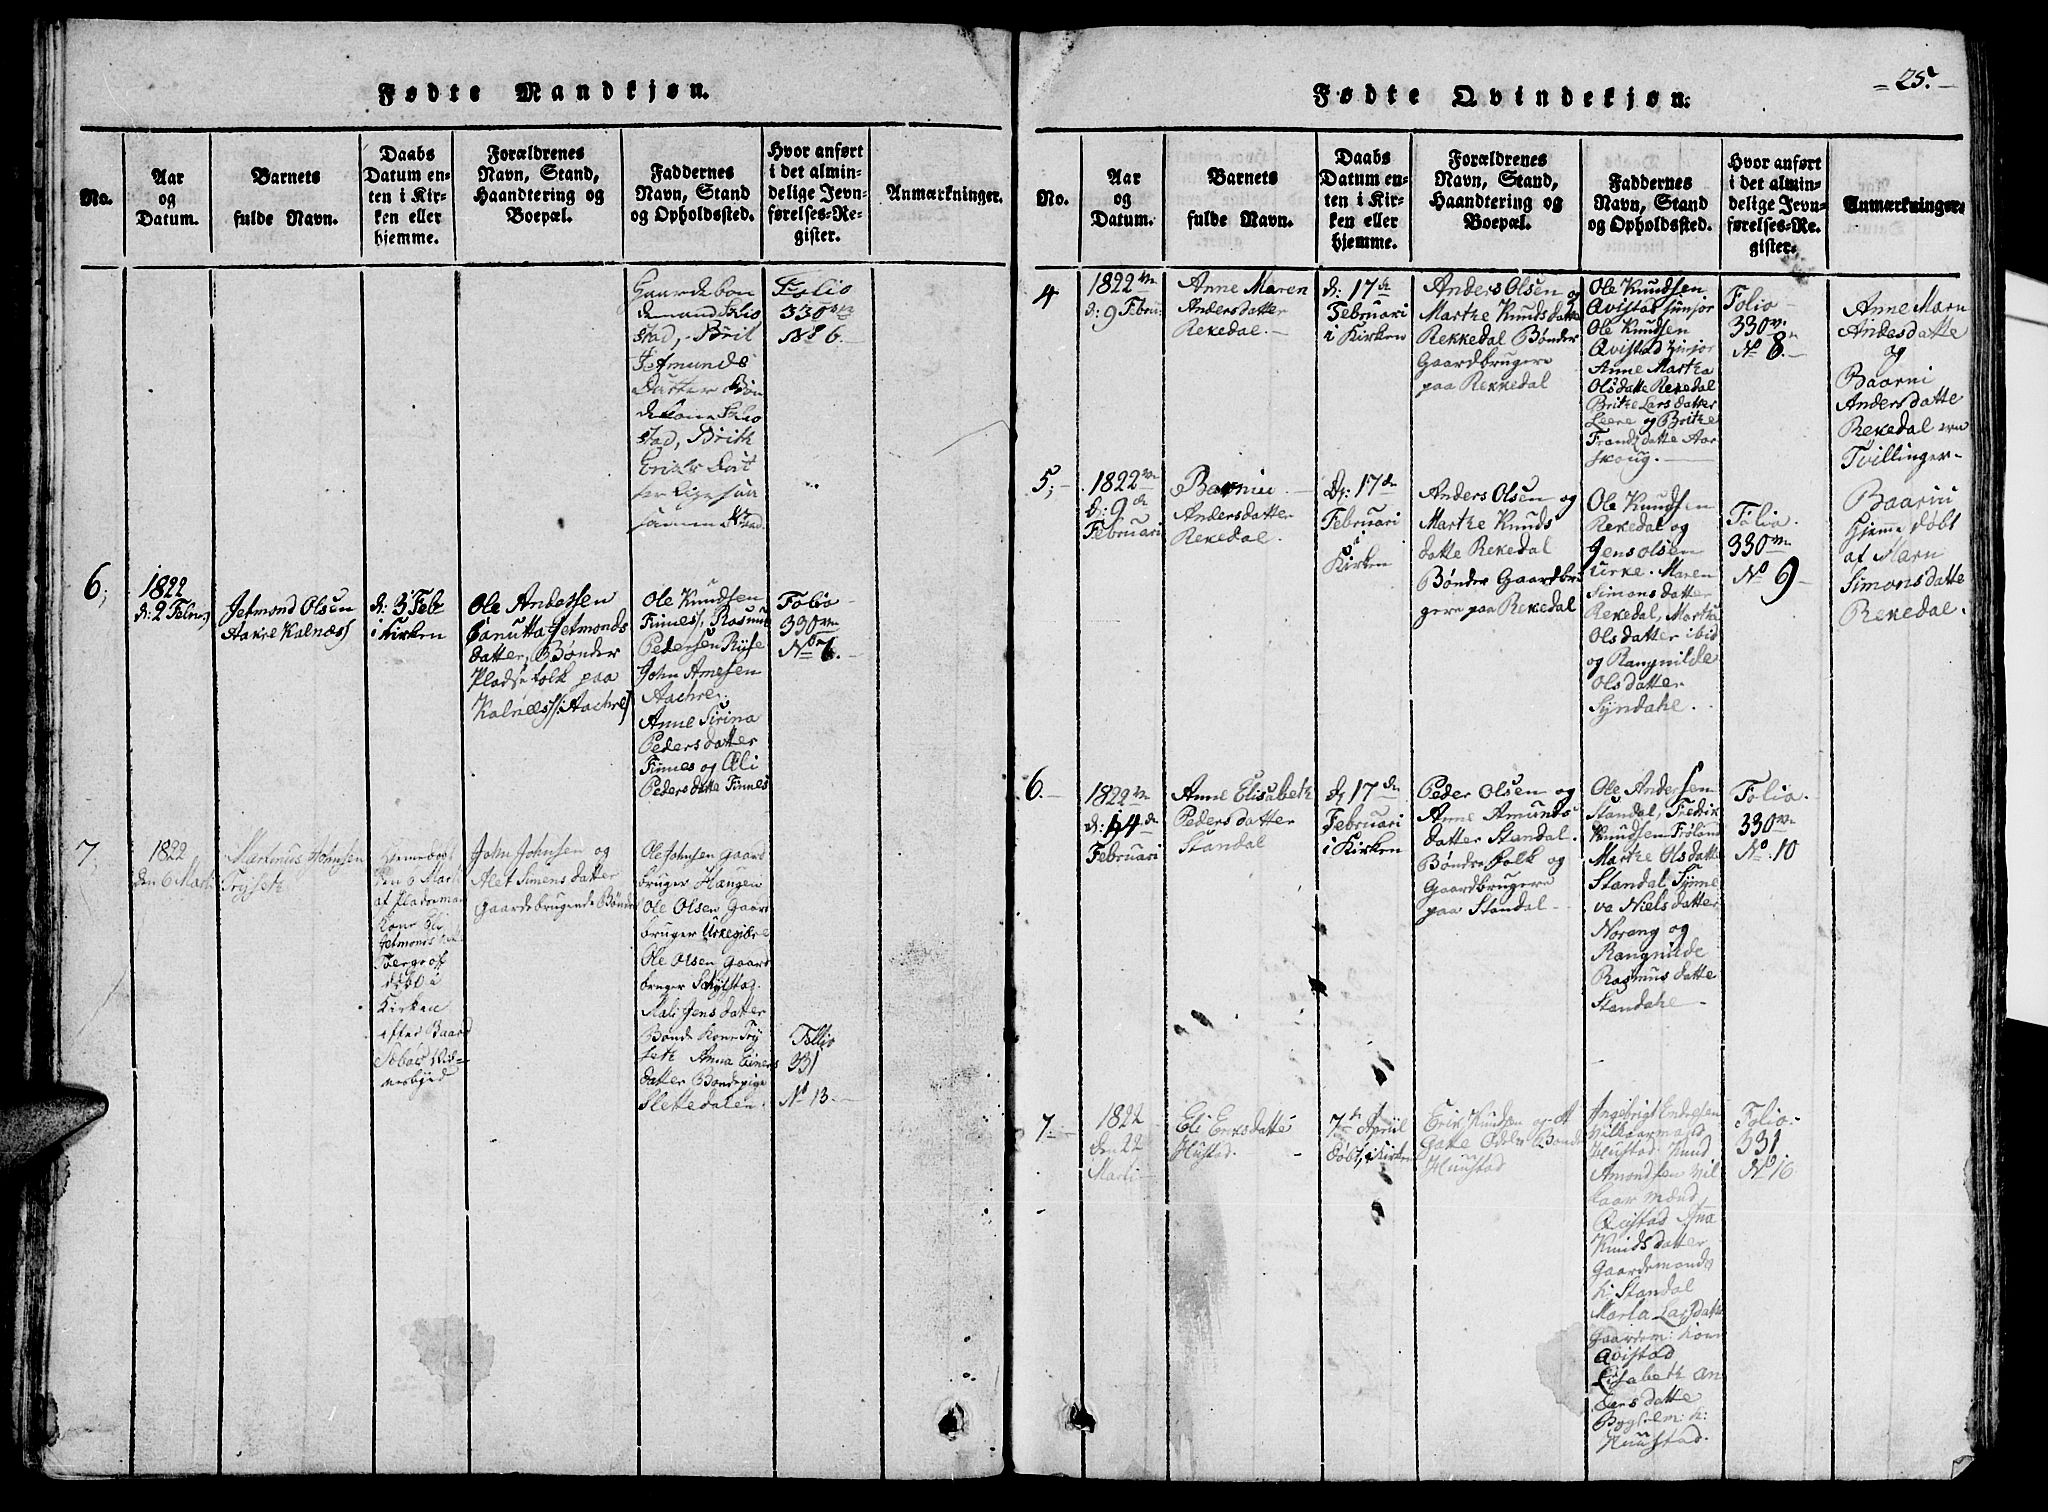 Fødte Mandkjøn.
No.
Aar
og
Datum.
Barnets
fulde Navn.
Daabs
Datum en-
ten i Kir-
ken eller
hjemme.
Forældrenes
Navn, Stand,
Haandtering og
Boepæl.
Faddernes
Navn, Stand
og Opholdssted.
Hvor anført
i det almin-
delige Jevn-
førelses-Re-
gister.
Anmærkninger.
Gaardebon
demand Skio
stad, Brit
Jetmunds
Datter Bon
dekone Skio
stad, Brith
Folio
330
No 6.
6;
1822
d: 2 Febr
Jetmond Olsen
Aakre Kalnæss
d: 3 Feb
i Kirken
Ole Andersen
Jetmonds
datter, Bønder
Pladsefolk paa
Kalnæss Aachre
Ole Knudsen
Finnes, Rasmus
Pedersen Ryse
John Arnesen
Aachre.
Anne Sirina
Pedersdatter
Finnes og Eli
Pedersdatte Finnes
Folio
330
No
7,
1822
den 6 Marti
Martinus Johnsen
Trysetz
den 6 Marti
af Pladseman
Kone Eli
Jetmonds
i
Kirken
efter Baard
John Johnsen og
Alet Simensdatter
Gaardebrugende Bønder
Ole Johnsen Gaard
bruger Haugen
Ole Olsen Gaard
bruger Urkegiere
Ole Olsen Gaard
bruger
Mali Jensdatter
Bonde Kone Try
seth Anna Einers
datter Bondepige
Slettedalen.
Follio
331
No 13.
Fødte Qvindekjøn.
25.
No.
Aar
og
Datum.
Barnets
fulde Navn.
Daabs
Datum en-
ten i Kir-
ken eller
hjemme.
Forældrenes
Navn, Stand,
Haandtering og
Boepæl.
Faddernes
Navn, Stand
og Opholdssted.
Hvor anført
i det almin-
delige Jevn-
førelses-Re-
gister.
Anmærkninger.
4
1822
d: 9 Febru:
Anne Maren
Andersdatter
Rekedal.
d: 17
Februari
i Kirken
Anders Olsen og
Marthe Knudsdatte
Rekkedal Bønder
Gaardbrugere
paa Rekkedal
Ole Knudsen
Qvistad junjor
Ole Knudsen
Qvistad
Anne Martha
Olsdatte Rekedal
Brithe Larsdatter
Leere og Brithe
Frandsdatte Aar
skoug.
Folio
330
No 8.
Anne Marn
Andesdatte
og
Baarni
Andersdatte
Rekedal ere
Tvillinger
5;
1822
d: 9de
Februari
Andersdatter
Rekedal.
D: 17de
Februari
i
Kirken
Anders Olsen og
Marthe Knuds
datte Rekedal
Bønder Gaardbru
gere paa Rekedal
Ole Knudsen
Rekedal og
Jens Olsen
Urke. Maren
Simonsdatter
Rekedal, Marthe
Olsdatter ibid
og Rangnilde
Olsdatter
Syndahe.
Folio.
330
No 9
Baarni
hjemme døbt
af Marn
Simonsdatte
Rekedal.
6.
1822
d: 14de
Februari
Anne Elisabeth
Pedersdatter
Standal
d 17
Februari
i Kirken
Peder Olsen og
Anne Amunds
datter Standal.
Bønder Folk og
Gaardbrugere
paa Standal
Ole Andersen
Standal, Fredrik
Knudsen Frøland
Marthe Olsdatte
Standal, Synne
va Nielsdatter
Norang og
Rangnilde
Rasmusdatte
Standahe
Folio.
330
No. 10
7.
1822
den 22
Marti
Eli Eriksdatte
Hustad.
7 Apriil
døbt i Kirken
Erik Knudsen og
Huustad
Ingebrigt Endresen
Vilkaarmand
Hustad Knud
Amondsen Vil
kaar mand
Qvistad Ana
Knudsdatter
Gaardemands
k: Standal
Marta Larsdatte
Gaardem: Kone
Qvistad
Elisabeth An
dersdatte
Bygselm: k:
Huustad.
Folio.
331
No 16